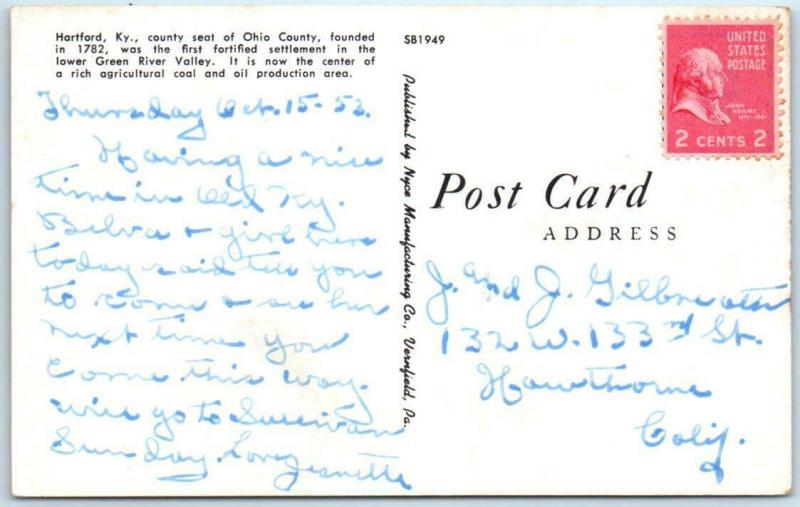 Hartford, Ky., county seat of Ohio County, founded
in 1782, was the first fortified settlement in the
lower Green River Valley. It is now the center of
a rich agricultural coal and oil production area.
Thursday Oct. 15-53.
Having a nice
time in Old Ky.
Belva + here
today said tell you
to come + see her
next time you
come this way.
will go to Sullivan
Sunday. Love Jeanette
SB1949
Published by Nyce Manufacturing Co., Vernfield, Pa.
UNITED
STATES
POSTAGE
JOHN
ADAMS
2 CENTS 2
Post Card
ADDRESS
J. and J. Gilbreath
132 W. 133rd St.
Hawthorne
Calif.